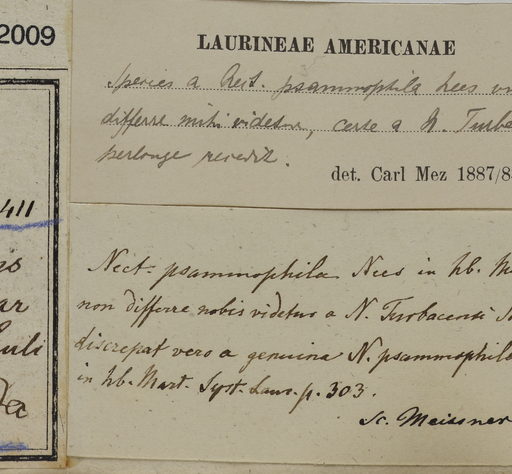 2009
411
LAURINEAE AMERICANAE
Species a Nect. psammophila Nees
differre mihi videtur, certe a N. Turba
perlonge recedit.
det. Carl Mez 1887/8
Nect. psammophila Nees in hb. M
non differre nobis videtur a N. Turbacensi
discrepat vero a genuina N. psammophila
in hb. Mart. Syst. Laur. p. 303.
Sc. Meissner